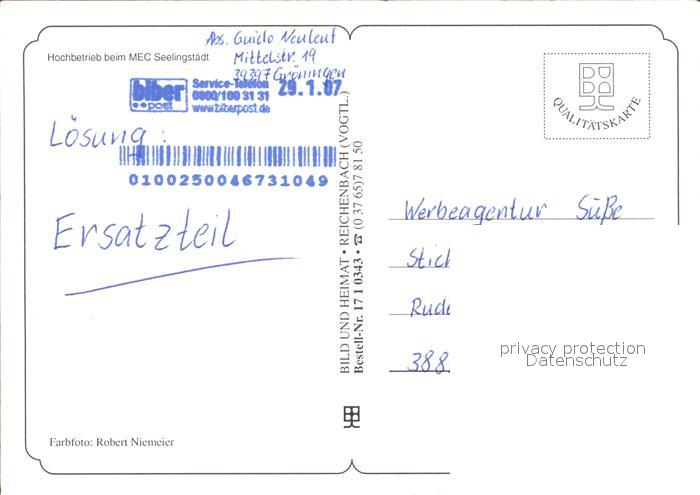 Abs. Guido Neuleuf
Mittelstr. 19
39397 Gröningen
Hochbetrieb beim MEC Seelingstädt
biber
post
Service-Telefon
0800/100 31 31
www.biberpost.de
29.1.07
Lösung:
0100250046731049
Ersatzteil
BILD UND HEIMAT • REICHENBACH (VOGTL.)
Bestell-Nr. 17 1 0343 • ☎ (0 37 65) 7 81 50
QUALITÄTSKARTE
Werbeagentur Süße
Stic
Rude
388
privacy protection
Datenschutz
Farbfoto: Robert Niemeier